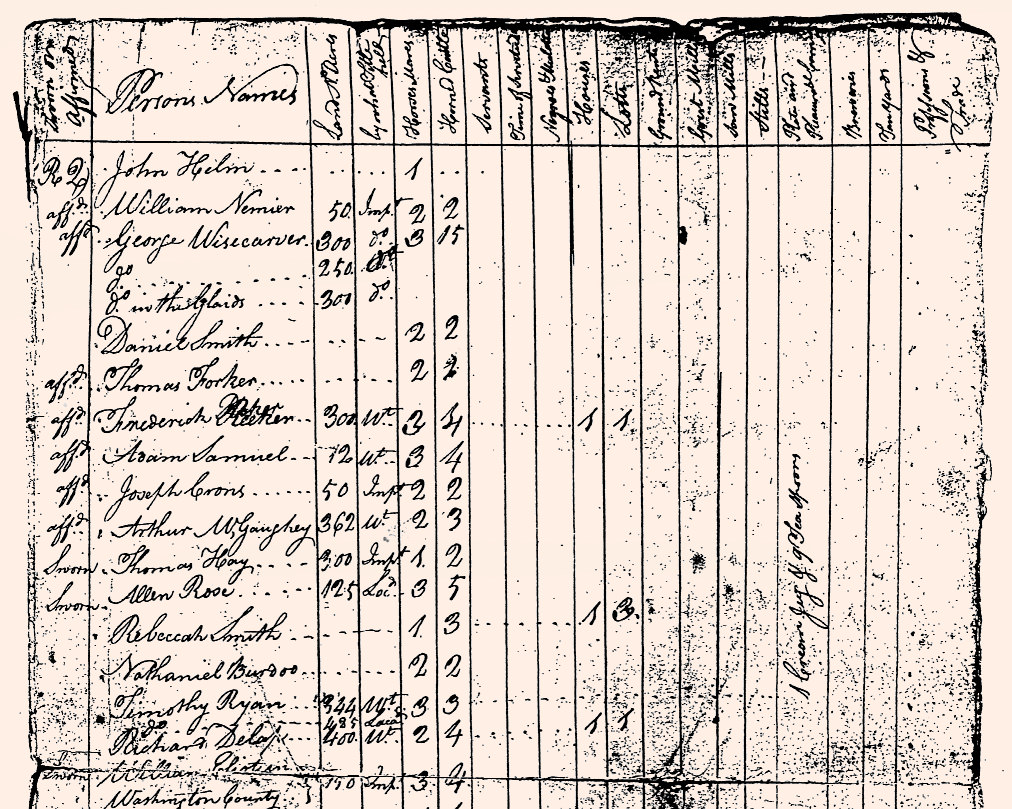 Sworn or Affirmed Persons Names Land N. Acres by what Title held Horses Mares Horned Cattle Servants Time of Servitude Negroes Houses Lotts Ground Rent Grist Mills Saw Mills Stills Plate and Breweries Tanyards of
John Helm 1
affd. William Nemier 50 Impt 2 2
affd. George Wisecarver 300 do 3 15
do 250
do in the Glaids 300 do
Daniel Smith 2 2
affd. Thomas Forker 2
affd. Frederick 300 Wt 3 4 1 1
affd. Adam Samuel 72 Wt 3 4
affd. Joseph Crons 50 Impt 2 2
affd. Arthur McGaughey 362 Wt 2 3
Sworn Thomas Hay 300 Impt 1 2
Sworn Allen Rose 125 Locd 3 5
Rebeccah Smith 1 3 1 3
Nathaniel Burdoo 2 2
Timothy Ryan 344 Wt 3 3 1 Cream Jug & 9 Tea Spoons
do 485
Richard Delap 400 Wt 2 4 1 1
Sworn William 150 Imp 3 4
Washington County